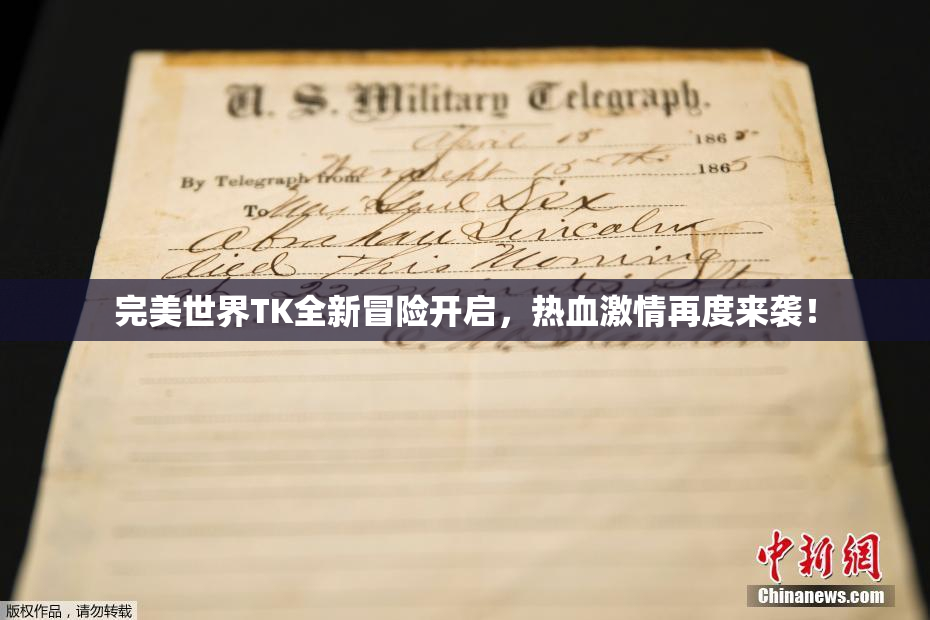 U. S. Military Telegraph.
April 15 1865
By Telegraph from War Dept 15th 1865
To Maj Genl Dix
Abraham Lincoln
died This Morning
at 22 minutes after
完美世界TK全新冒险开启，热血激情再度来袭！
E. M. Stanton
中新網
Chinanews.com
版权作品，请勿转载